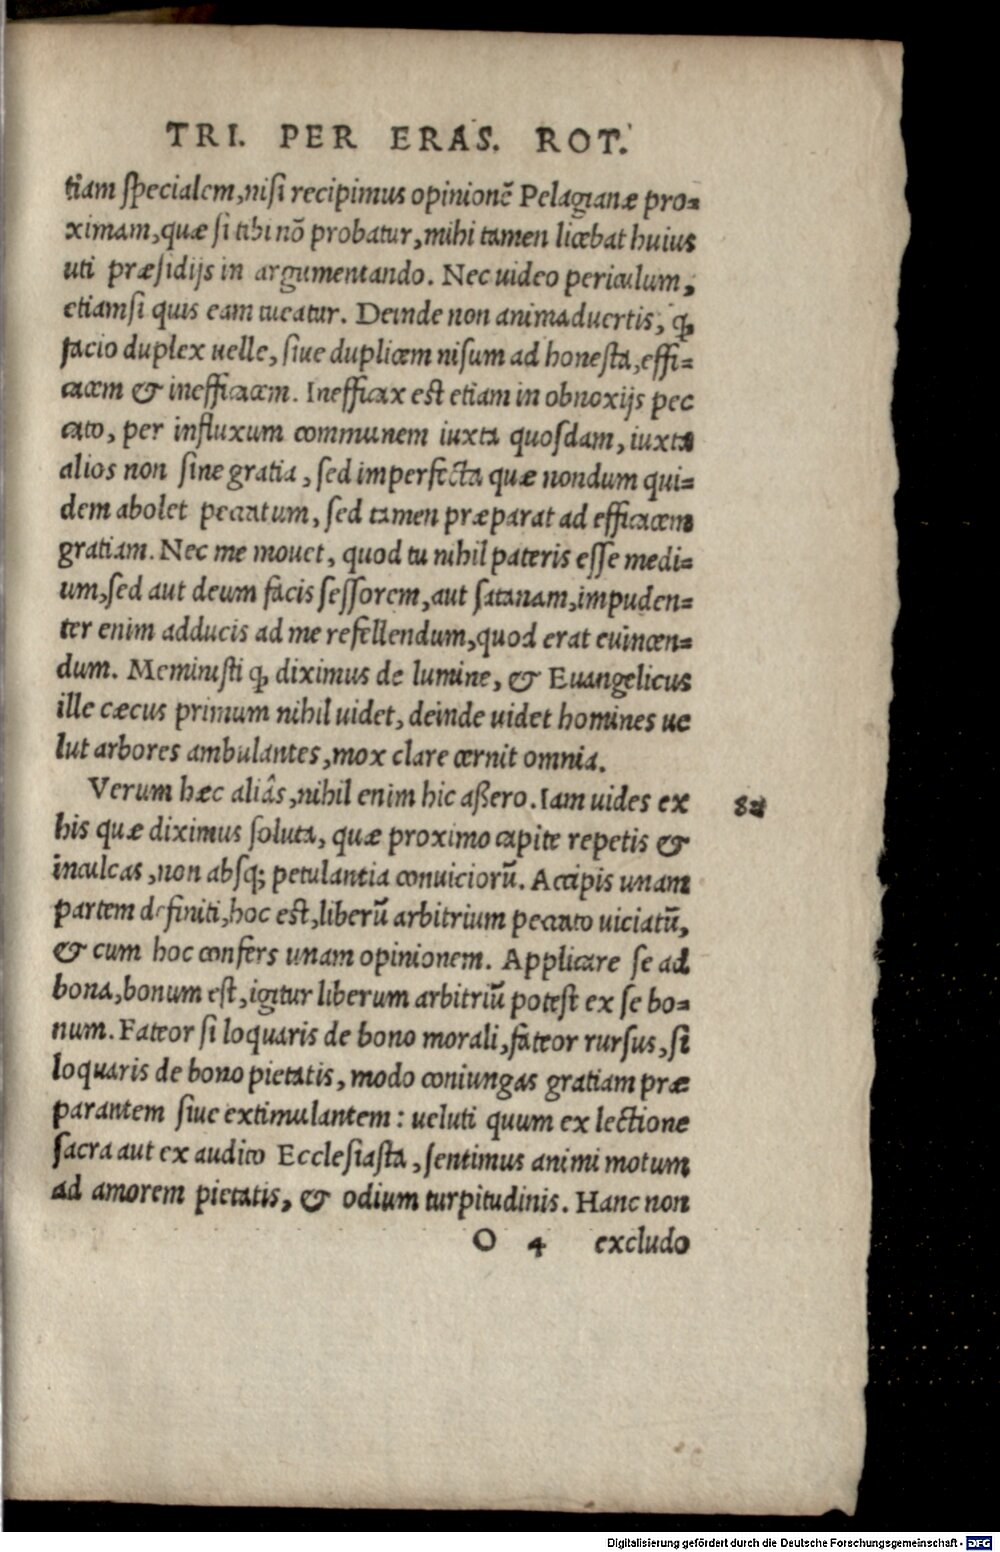 TRI. PER ERAS. ROT.
tiam specialem, nisi recipimus opinionē Pelagianæ pro=
ximam, quæ si tibi nō probatur, mihi tamen licebat huius
uti præsidijs in argumentando. Nec uideo periculum,
etiamsi quis eam tueatur. Deinde non animaduertis, ꝙ
facio duplex uelle, siue duplicem nisum ad honesta, effi=
cacem & inefficacem. Inefficax est etiam in obnoxijs pec
cato, per influxum communem iuxta quosdam, iuxta
alios non sine gratia, sed imperfecta quæ nondum qui=
dem abolet peccatum, sed tamen præparat ad efficacem
gratiam. Nec me mouet, quod tu nihil pateris esse medi=
um, sed aut deum facis sessorem, aut satanam, impuden=
ter enim adducis ad me refellendum, quod erat euincen=
dum. Meministi ꝙ diximus de lumine, & Euangelicus
ille cæcus primum nihil uidet, deinde uidet homines ue
lut arbores ambulantes, mox clare cernit omnia.
Verum hæc aliâs, nihil enim hic aßero. Iam uides ex
his quæ diximus soluta, quæ proximo capite repetis &
inculcas, non absq; petulantia conuiciorū. Accipis unam
partem definiti, hoc est, liberū arbitrium peccato uiciatū,
& cum hoc confers unam opinionem. Applicare se ad
bona, bonum est, igitur liberum arbitriū potest ex se bo=
num. Fateor si loquaris de bono morali, fateor rursus, si
loquaris de bono pietatis, modo coniungas gratiam præ
parantem siue extimulantem: ueluti quum ex lectione
sacra aut ex audito Ecclesiasta, sentimus animi motum
ad amorem pietatis, & odium turpitudinis. Hanc non
O 4 excludo
Digitalisierung gefördert durch die Deutsche Forschungsgemeinschaft - DFG